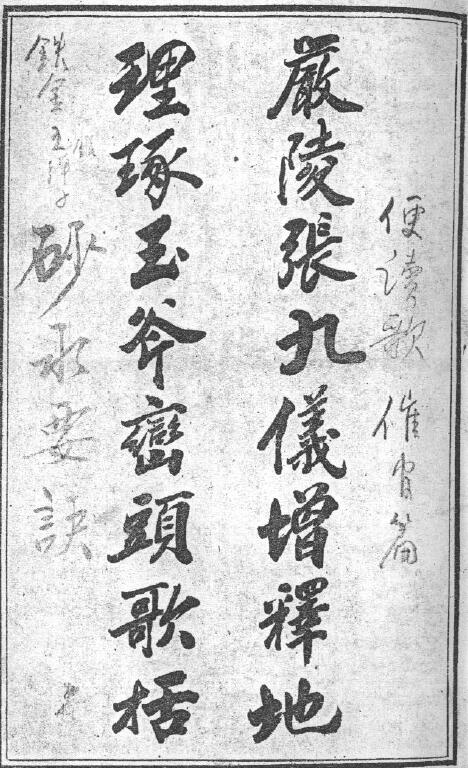 便讀歌 催官篇
嚴陵張九儀增釋地
理琢玉斧巒頭歌括
砂水要訣